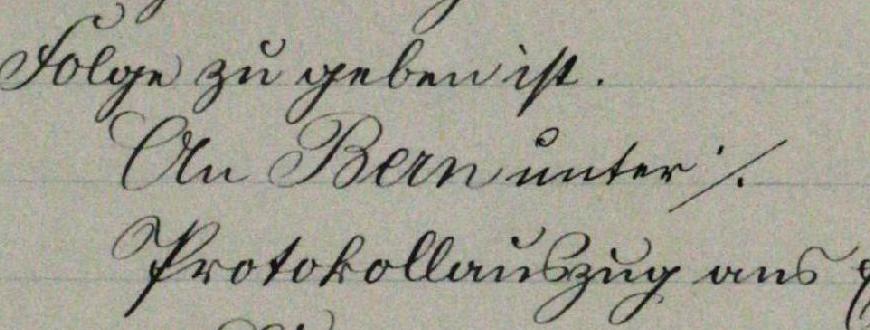 Folge zu geben ist.
An Bern unter ./.
Protokollauszug ans